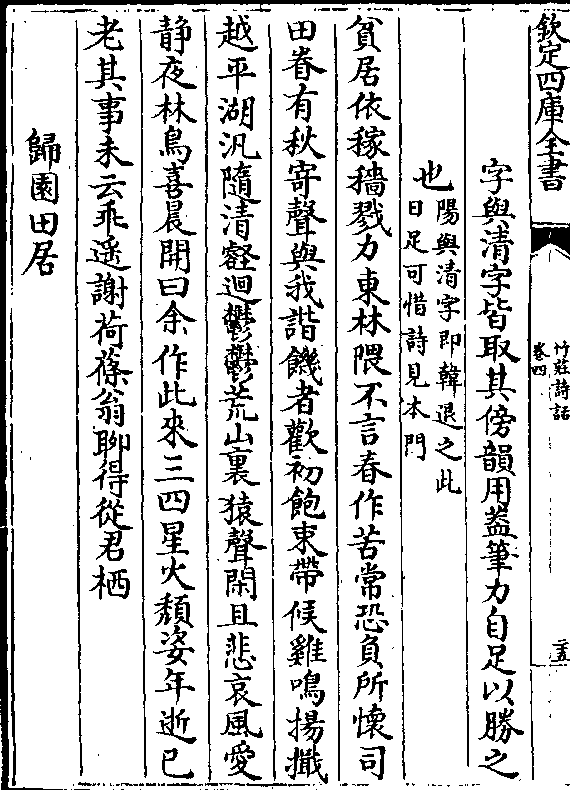 欽定四庫全書
竹莊詩話
卷四
二五
字與清字皆取其傍韻用蓋筆力自足以勝之
也
陽與清字即韓退之此
日足可惜詩見本門
貧居依稼穡戮力東林隈不言春作苦常恐負所懷司
田眷有秋寄聲與我諧饑者歡初飽束帶候雞鳴揚檝
越平湖汎隨清壑迴鬱鬱荒山裏猿聲閑且悲哀風愛
静夜林鳥喜晨開曰余作此來三四星火頽姿年逝已
老其事未云乖遥謝荷蓧翁聊得從君栖
歸園田居